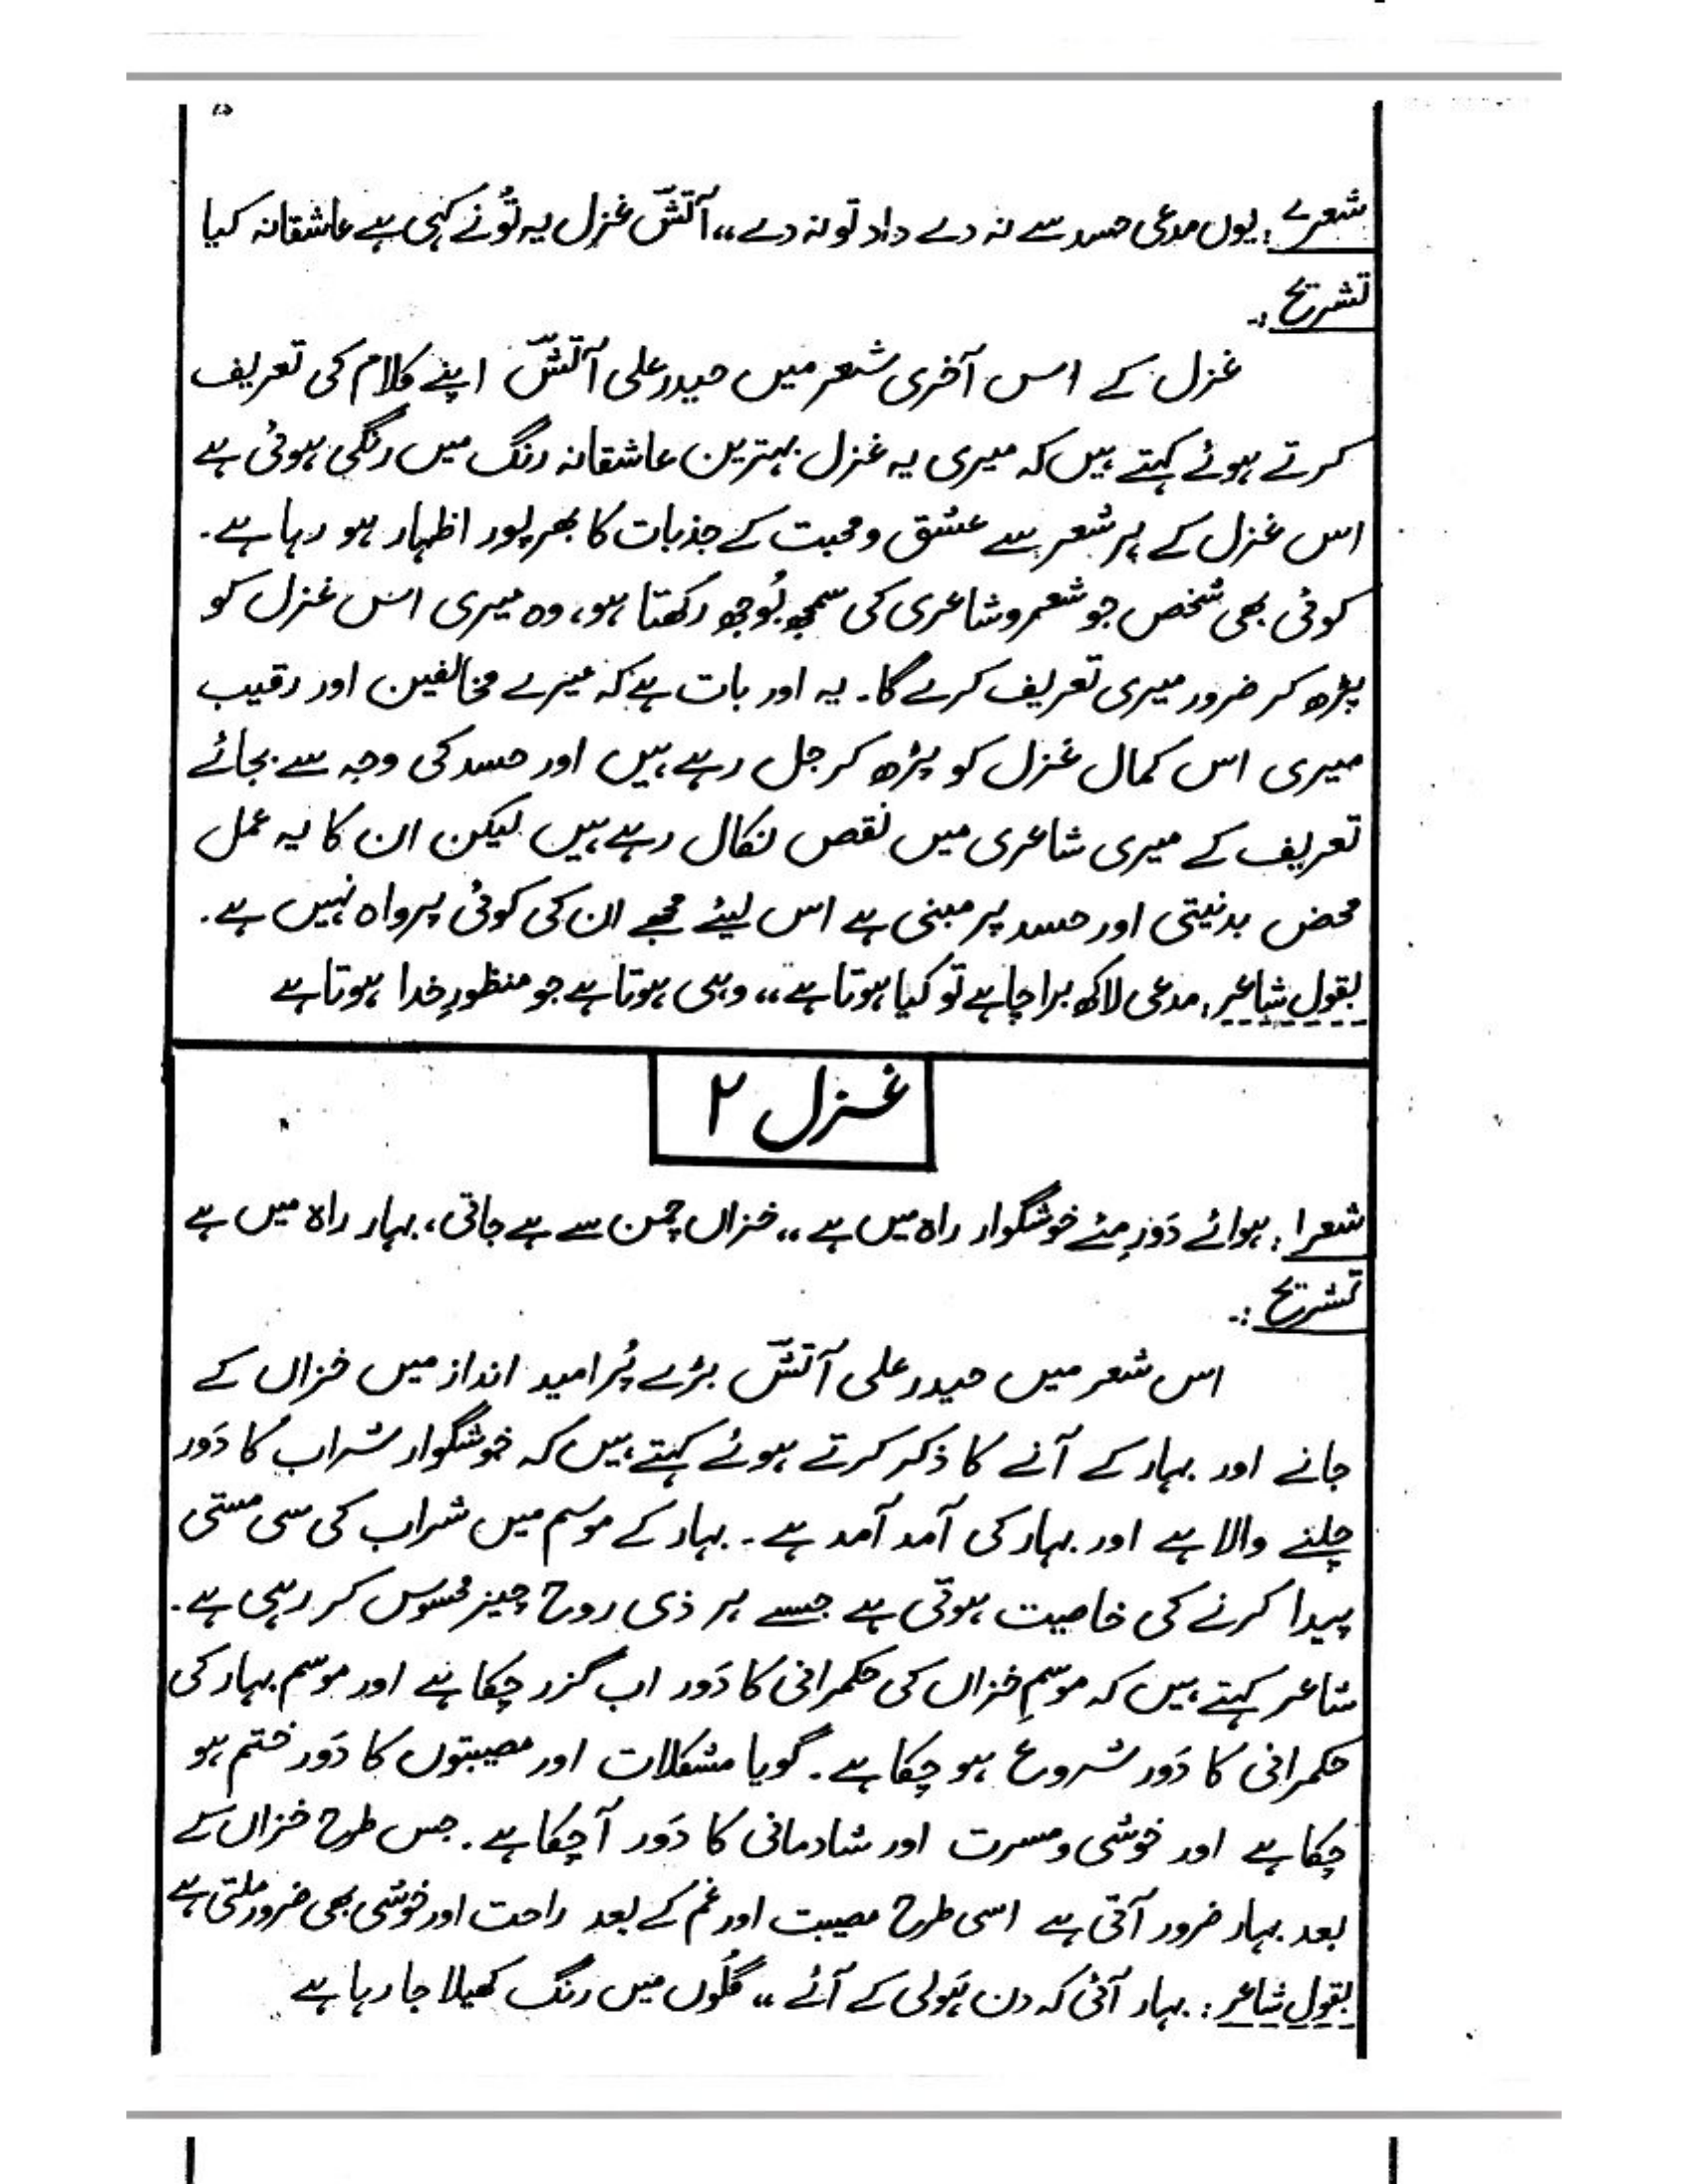 ۵
شعر ۷: یوں مدعی حسد سے نہ دے داد تو نہ دے ،، آتشؔ غزل یہ تُو نے کہی ہے عاشقانہ کیا
تشریح :۔
غزل کے اس آخری شعر میں حیدر علی آتشؔ اپنے کلام کی تعریف
کرتے ہوئے کہتے ہیں کہ میری یہ غزل بہترین عاشقانہ رنگ میں رنگی ہوئی ہے
اس غزل کے ہر شعر سے عشق و محبت کے جذبات کا بھرپور اظہار ہو رہا ہے۔
کوئی بھی شخص جو شعر و شاعری کی سمجھ بُوجھ رکھتا ہو، وہ میری اس غزل کو
پڑھ کر ضرور میری تعریف کرے گا۔ یہ اور بات ہے کہ میرے مخالفین اور رقیب
میری اس کمال غزل کو پڑھ کر جل رہے ہیں اور حسد کی وجہ سے بجائے
تعریف کے میری شاعری میں نقص نکال رہے ہیں لیکن ان کا یہ عمل
محض بدنیتی اور حسد پر مبنی ہے اس لیئے مجھے ان کی کوئی پرواہ نہیں ہے۔
بقول شاعر: مدعی لاکھ برا چاہے تو کیا ہوتا ہے ،، وہی ہوتا ہے جو منظورِ خدا ہوتا ہے
غزل ۲
شعر ۱: ہوائے دَورِ مئے خوشگوار راہ میں ہے ،، خزاں چمن سے ہے جاتی، بہار راہ میں ہے
تشریح :۔
اس شعر میں حیدر علی آتشؔ بڑے پُر امید انداز میں خزاں کے
جانے اور بہار کے آنے کا ذکر کرتے ہوئے کہتے ہیں کہ خوشگوار شراب کا دَور
چلنے والا ہے اور بہار کی آمد آمد ہے۔ بہار کے موسم میں شراب کی سی مستی
پیدا کرنے کی خاصیت ہوتی ہے جسے ہر ذی روح چیز محسوس کر رہی ہے۔
شاعر کہتے ہیں کہ موسمِ خزاں کی حکمرانی کا دَور اب گزر چکا ہے اور موسم بہار کی
حکمرانی کا دَور شروع ہو چکا ہے۔ گویا مشکلات اور مصیبتوں کا دَور ختم ہو
چکا ہے اور خوشی و مسرت اور شادمانی کا دَور آ چکا ہے۔ جس طرح خزاں کے
بعد بہار ضرور آتی ہے اسی طرح مصیبت اور غم کے بعد راحت اور خوشی بھی ضرور ملتی ہے
بقول شاعر: بہار آئی کہ دن ہَولی کے آئے ،، گُلوں میں رنگ کھیلا جا رہا ہے